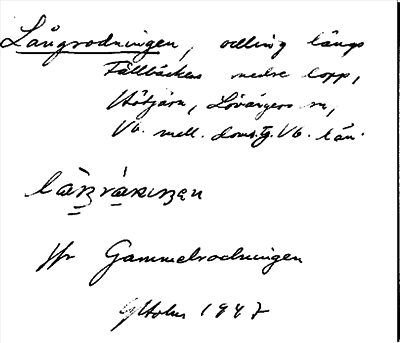 Långrodningen, odling längs
Fällbäckens nedre lopp,
Hötjärn, Lövångers sn,
Vb. mell. doms. Vb. län.
Jfr Gammelrodningen
1947